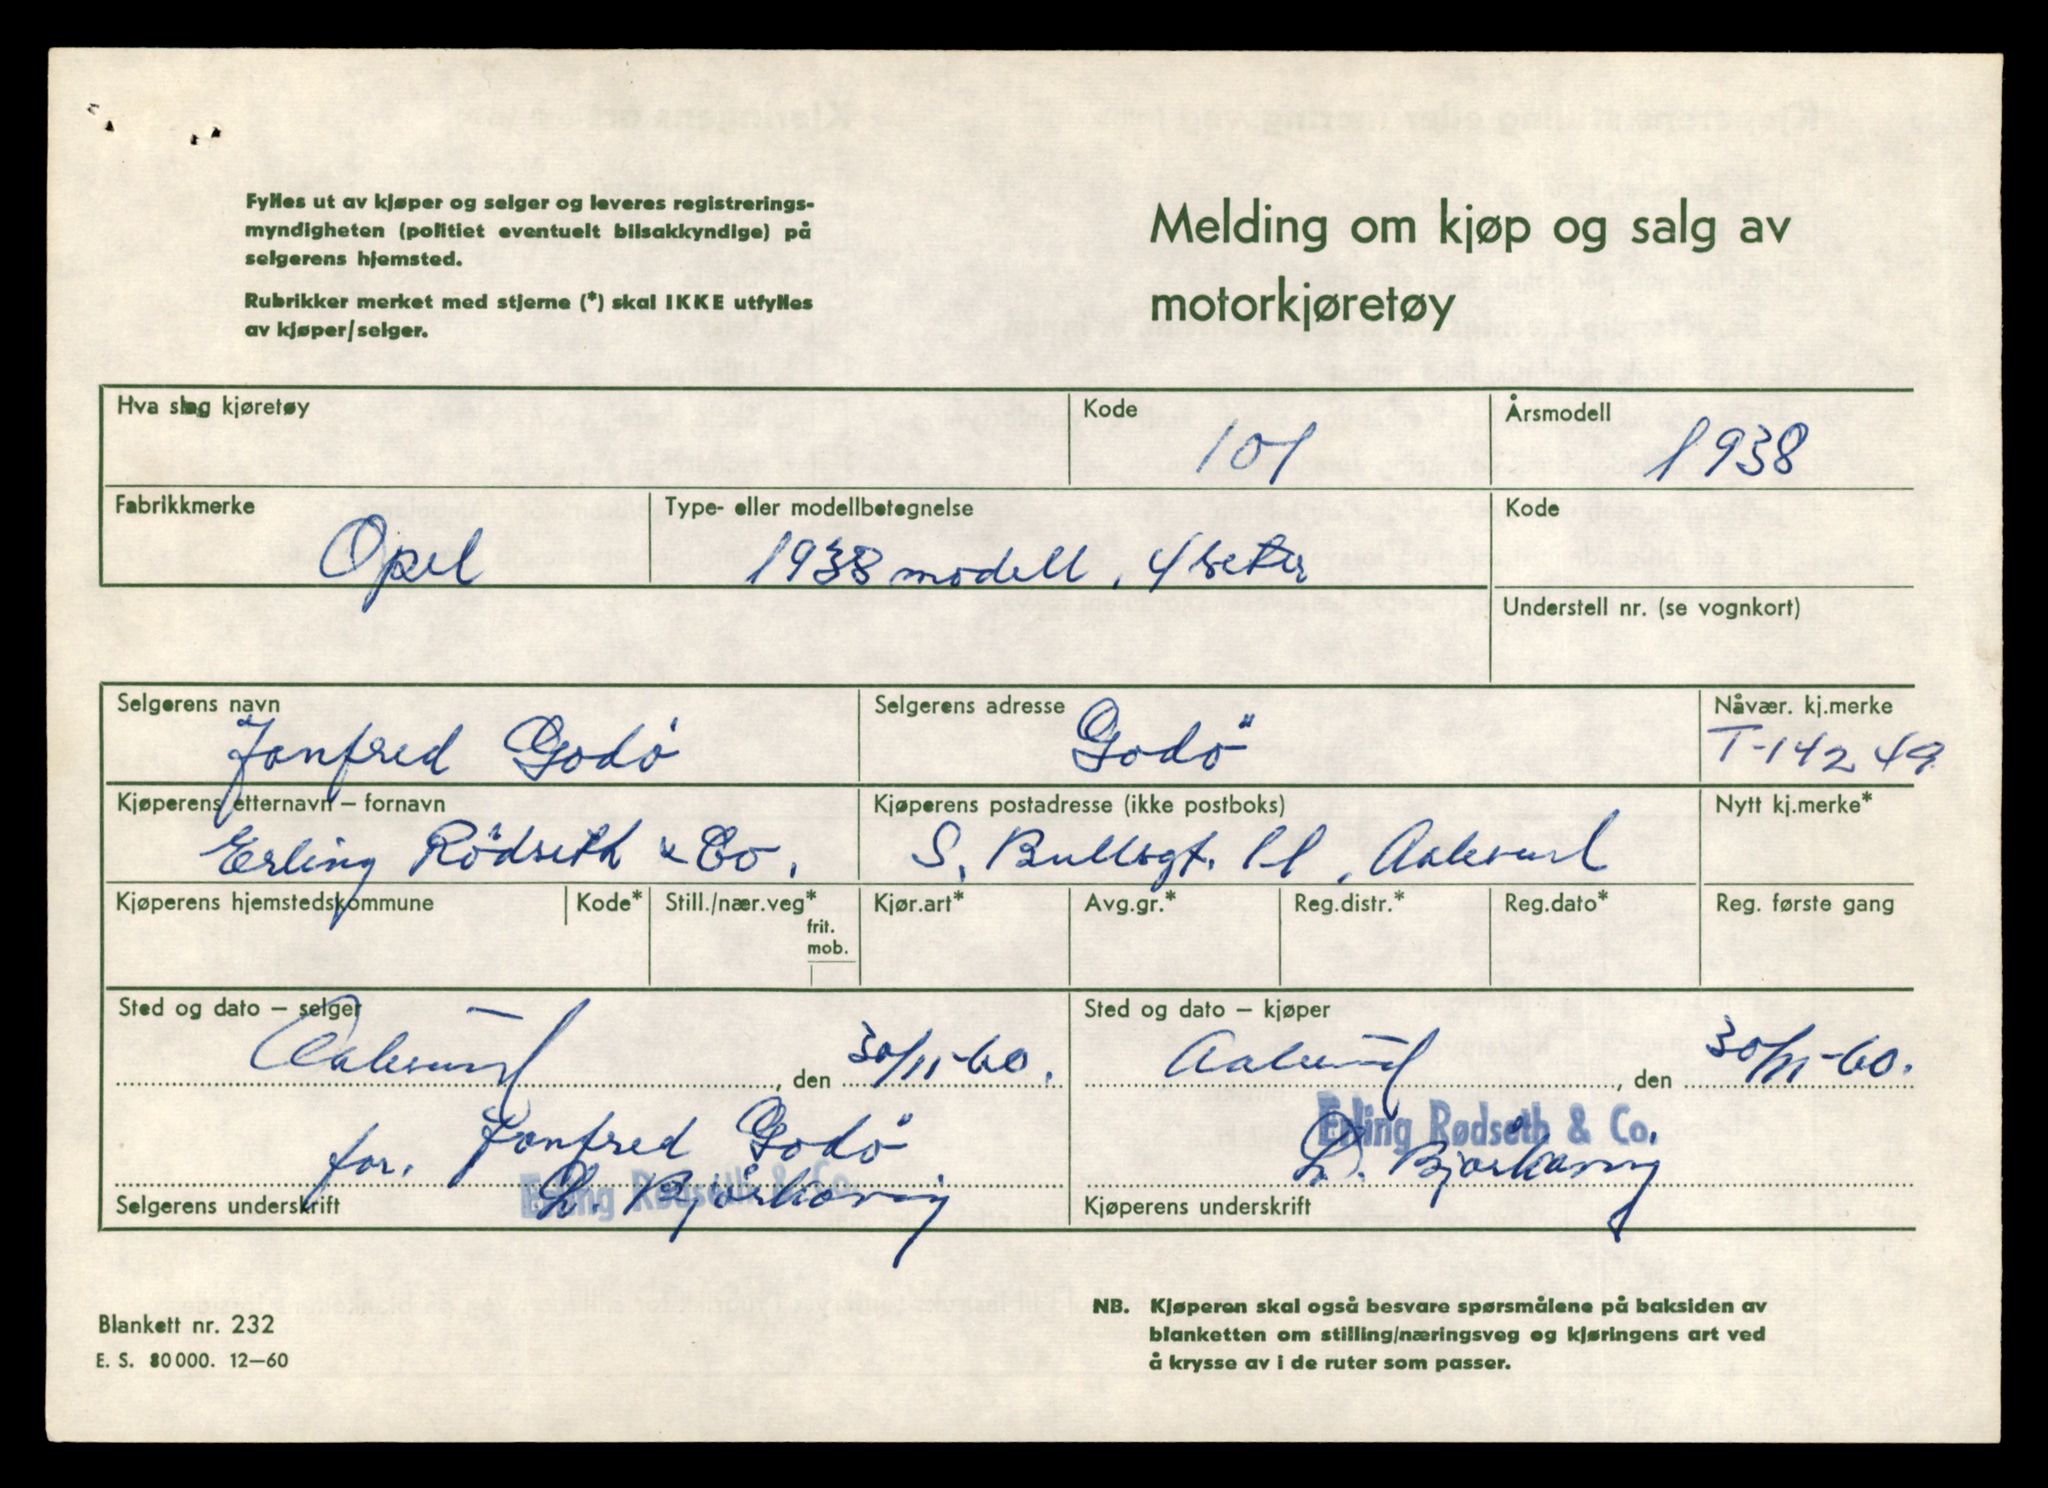 Fylles ut av kjøper og selger og leveres registrerings-
myndigheten (politiet eventuelt bilsakkyndige) på
selgerens hjemsted.
Rubrikker merket med stjerne (*) skal IKKE utfylles
av kjøper/selger.
Melding om kjøp og salg av
motorkjøretøy
Hva slag kjøretøy
Kode
101
Årsmodell
1938
Fabrikkmerke
Opel
Type- eller modellbetegnelse
1938 modell, 4 seter
Kode
Understell nr. (se vognkort)
Selgerens navn
Jonfred Godö
Selgerens adresse
Godö
Nåvær. kj.merke
T-14249
Kjøperens etternavn – fornavn
Erling Rödseth & Co.
Kjøperens postadresse (ikke postboks)
S. Bullsgt. 11, Aalesund
Nytt kj.merke*
Kjøperens hjemstedskommune
Kode*
Still./nær.veg*
frit.
mob.
Kjør.art*
Avg.gr.*
Reg.distr.*
Reg.dato*
Reg. første gang
Sted og dato – selger
Aalesund, den 30/11-60.
for. Jonfred Godö
Erling Rødseth & Co.
Selgerens underskrift
Sted og dato – kjøper
Aalesund, den 30/11-60.
Erling Rødseth & Co.
Kjøperens underskrift
Blankett nr. 232
E. S. 80000. 12–60
NB. Kjøperen skal også besvare spørsmålene på baksiden av
blanketten om stilling/næringsveg og kjøringens art ved
å krysse av i de ruter som passer.